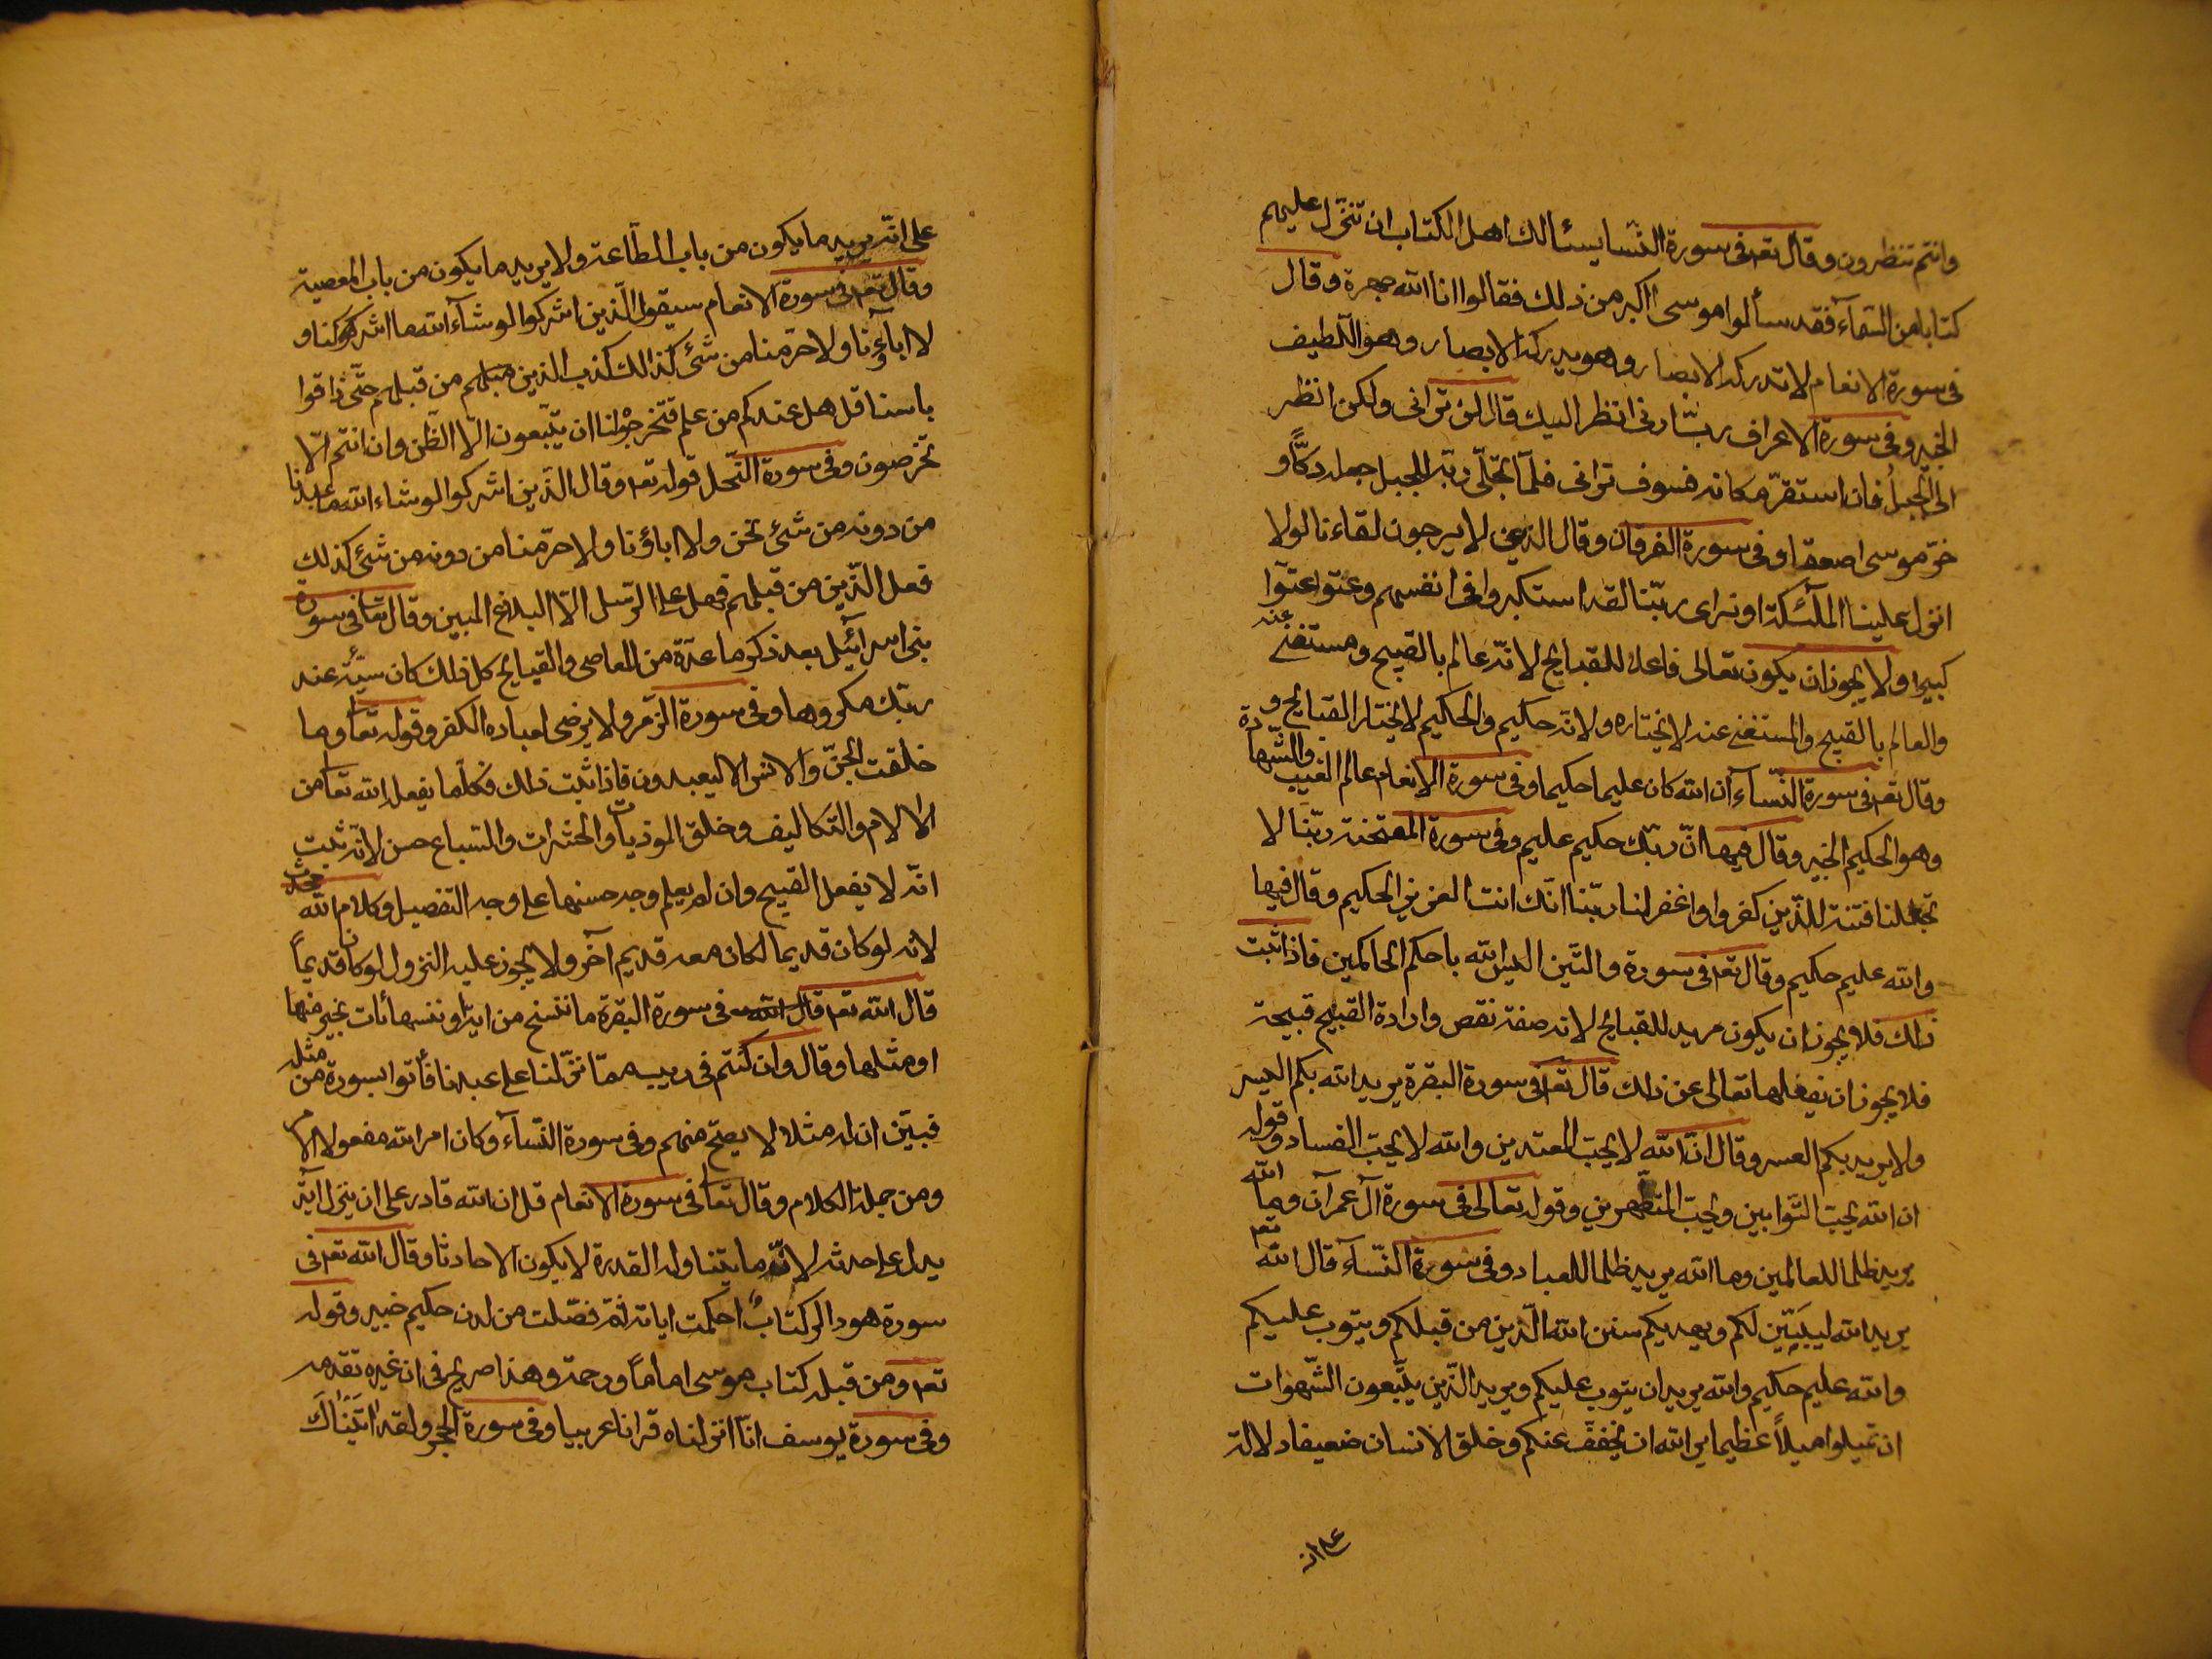 وانتم تنظرون وقال تعه فى سورة النسا يسئالك اهل الكتاب ان تنزّل عليهم
كتابا من السّمآء فقد سألوا موسى اكبر من ذلك فقالوا ارنا الله جهرة وقال
فى سورة الانعام لا تدركه الابصار وهو يدركه الابصار وهو اللّطيف
الخبير وفى سورة الاعراف ربّ ارنى انظر اليك قال لن ترانى ولكن انظر
الى الجبل فان استقرّ مكانه فسوف ترانى فلمّا تجلّى ربّه للجبل جعله دكّاً و
خرّ موسى صعقا وفى سورة الفرقان وقال الذين لا يرجون لقاءنا لولا
انزل علينا الملٰئكة او نرى ربّنا لقد استكبروا فى انفسهم وعتو اعتوّا
كبيرا ولا يجوز ان يكون تعالى فاعلا للقبايح لانّه عالم بالقبيح ومستغنى عنه
والعالم بالقبيح والمستغنى عنه لا يختاره ولانّه حكيم والحكيم لا يختار القبايح و
وقال تعه فى سورة النّسآء ان الله كان عليما حكيما وفى سورة الانعام عالم الغيب والشّهادة
وهو الحكيم الخبير وقال فيها انّ ربّك حكيم عليم وفى سورة الممتحنة ربّنا لا
تجعلنا فتنة للذّين كفروا واغفر لنا ربّنا انّك انت العزيز الحكيم وقال فيها
والله عليم حكيم وقال تعه فى سورة والتّين اليس الله باحكم الحاكمين فاذا ثبت
ذلك فلا يجوز ان يكون مريد للقبايح لانه صفة نقص وارادة القبيح قبيحة
فلا يجوز ان يفعلها تعالى عن ذلك قال تعه فى سورة البقرة يريد الله بكم اليسر
ولا يريد بكم العسر وقال انّ الله لا يحبّ المعتدين والله لا يحبّ الفساد وقوله
ان الله يحبّ التّوابين ويحبّ المتطهرين وقوله تعالى فى سورة آل عمران وما الله
يريد ظلما للعالمين وما الله يريد ظلما للعباد وفى سورة النّسآء قال الله تعه
يريد الله ليبيّن لكم ويهديكم سنن الله الّذين من قبلكم ويتوب عليكم
والله عليم حكيم والله يريد ان يتوب عليكم ويريد الّذين يتّبعون الشّهوات
ان تميلوا ميلاً عظيما ير الله ان يخفف عنكم وخلق الانسان ضعيفا دلالة
على انه
على انّه يريد ما يكون من باب الطّاعة ولا يريد ما يكون من باب المعصية
وقال تعه فى سورة الانعام سيقول الّذين اشركوا لو شآء الله ما اشركنا و
لا اباؤنا ولا حرّمنا من شئ كذالك كذب الذين من قبلهم حتّى ذاقوا
باسنا قل هل عندكم من علم فتخرجوه لنا ان يتّبعون الّا الظّن وان انتم الّا
تخرصون وفى سورة النّحل قوله تعه وقال الّذين اشركوا لو شاء الله ما عبدنا
من دونه من شئ نحن ولا اباؤنا ولا حرّمنا من دونه من شئ كذلك
فعل الّذين من قبلهم فهل على الرّسل الّا البلاغ المبين وقال تعا فى سورة
بنى اسرائيل بعد ذكر ما عدّة من المعاصى والقبايح كل ذلك كان سيّئة عند
ربّك مكروها وفى سورة الزّمر ولا يرضى لعباده الكفر وقوله تعا وما
خلقت الجنّ والانس الا ليعبدون فاذا ثبت ذلك فكلّما يفعل الله تعا من
الالام والتكاليف وخلق الموذيات والحشرات والسّباع حسن لانّه ثبت
انّه لا يفعل القبيح وان لم يعلم وجه حسنها على وجه التفصيل وكلام الله محدث
لانه لو كان قديما لكان معه قديم آخر ولا يجوز عليه النزول لو كان قديماً
قال الله تعه فى سورة البقرة ما ننسخ من اية او ننسها نأت بخير منها
او مثلها وقال وان كنتم فى ريب ممّا نزّلنا على عبدنا فأتوا بسورة من مثله
فبيّن ان له مثلا لا يصحّ منهم وفى سورة النّسآء وكان امر الله مفعولا الامر
ومن جملة الكلام وقال تعا فى سورة الانعام قل ان الله قادر على ان ينزل آية
يدل على حدثه لانّه ما يتناوله القدرة لا يكون الا حادثا وقال الله تعه فى
سورة هود الر كتابٌ احكمت اياته ثمّ فصّلت من لدن حكيم خبير وقوله
تعه ومن قبله كتاب موسى اماماً ورحمة وهذا صريح فى ان غيره تقدمه
وفى سورة يوسف انّا انزلناه قرانا عربيا وفى سورة الحجر ولقد اٰتيناكَ